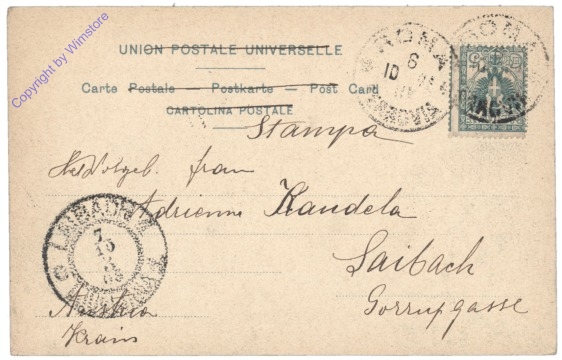 Copyright by Wimstore
UNION POSTALE UNIVERSELLE
Carte Postale — Postkarte — Post Card
CARTOLINA POSTALE
ROMA
6
10
FERROVIA
ROMA
Stampa
Hochwolgeb. frau
Adrienne Kandela
Laibach
Gorrupgasse
LAIBACH
7
10
LJUBLJANA
Austria
Krain